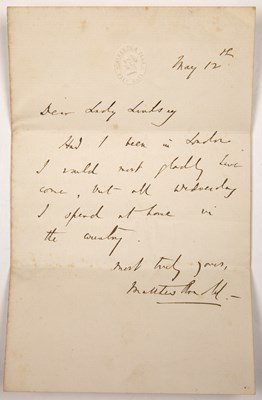 May 12th
Dear Lady Lindsay
Had I been in London
I would most gladly have
come, but all Wednesday
I spend at home in
the country.
Most truly yours,
Matthew Arnold.—